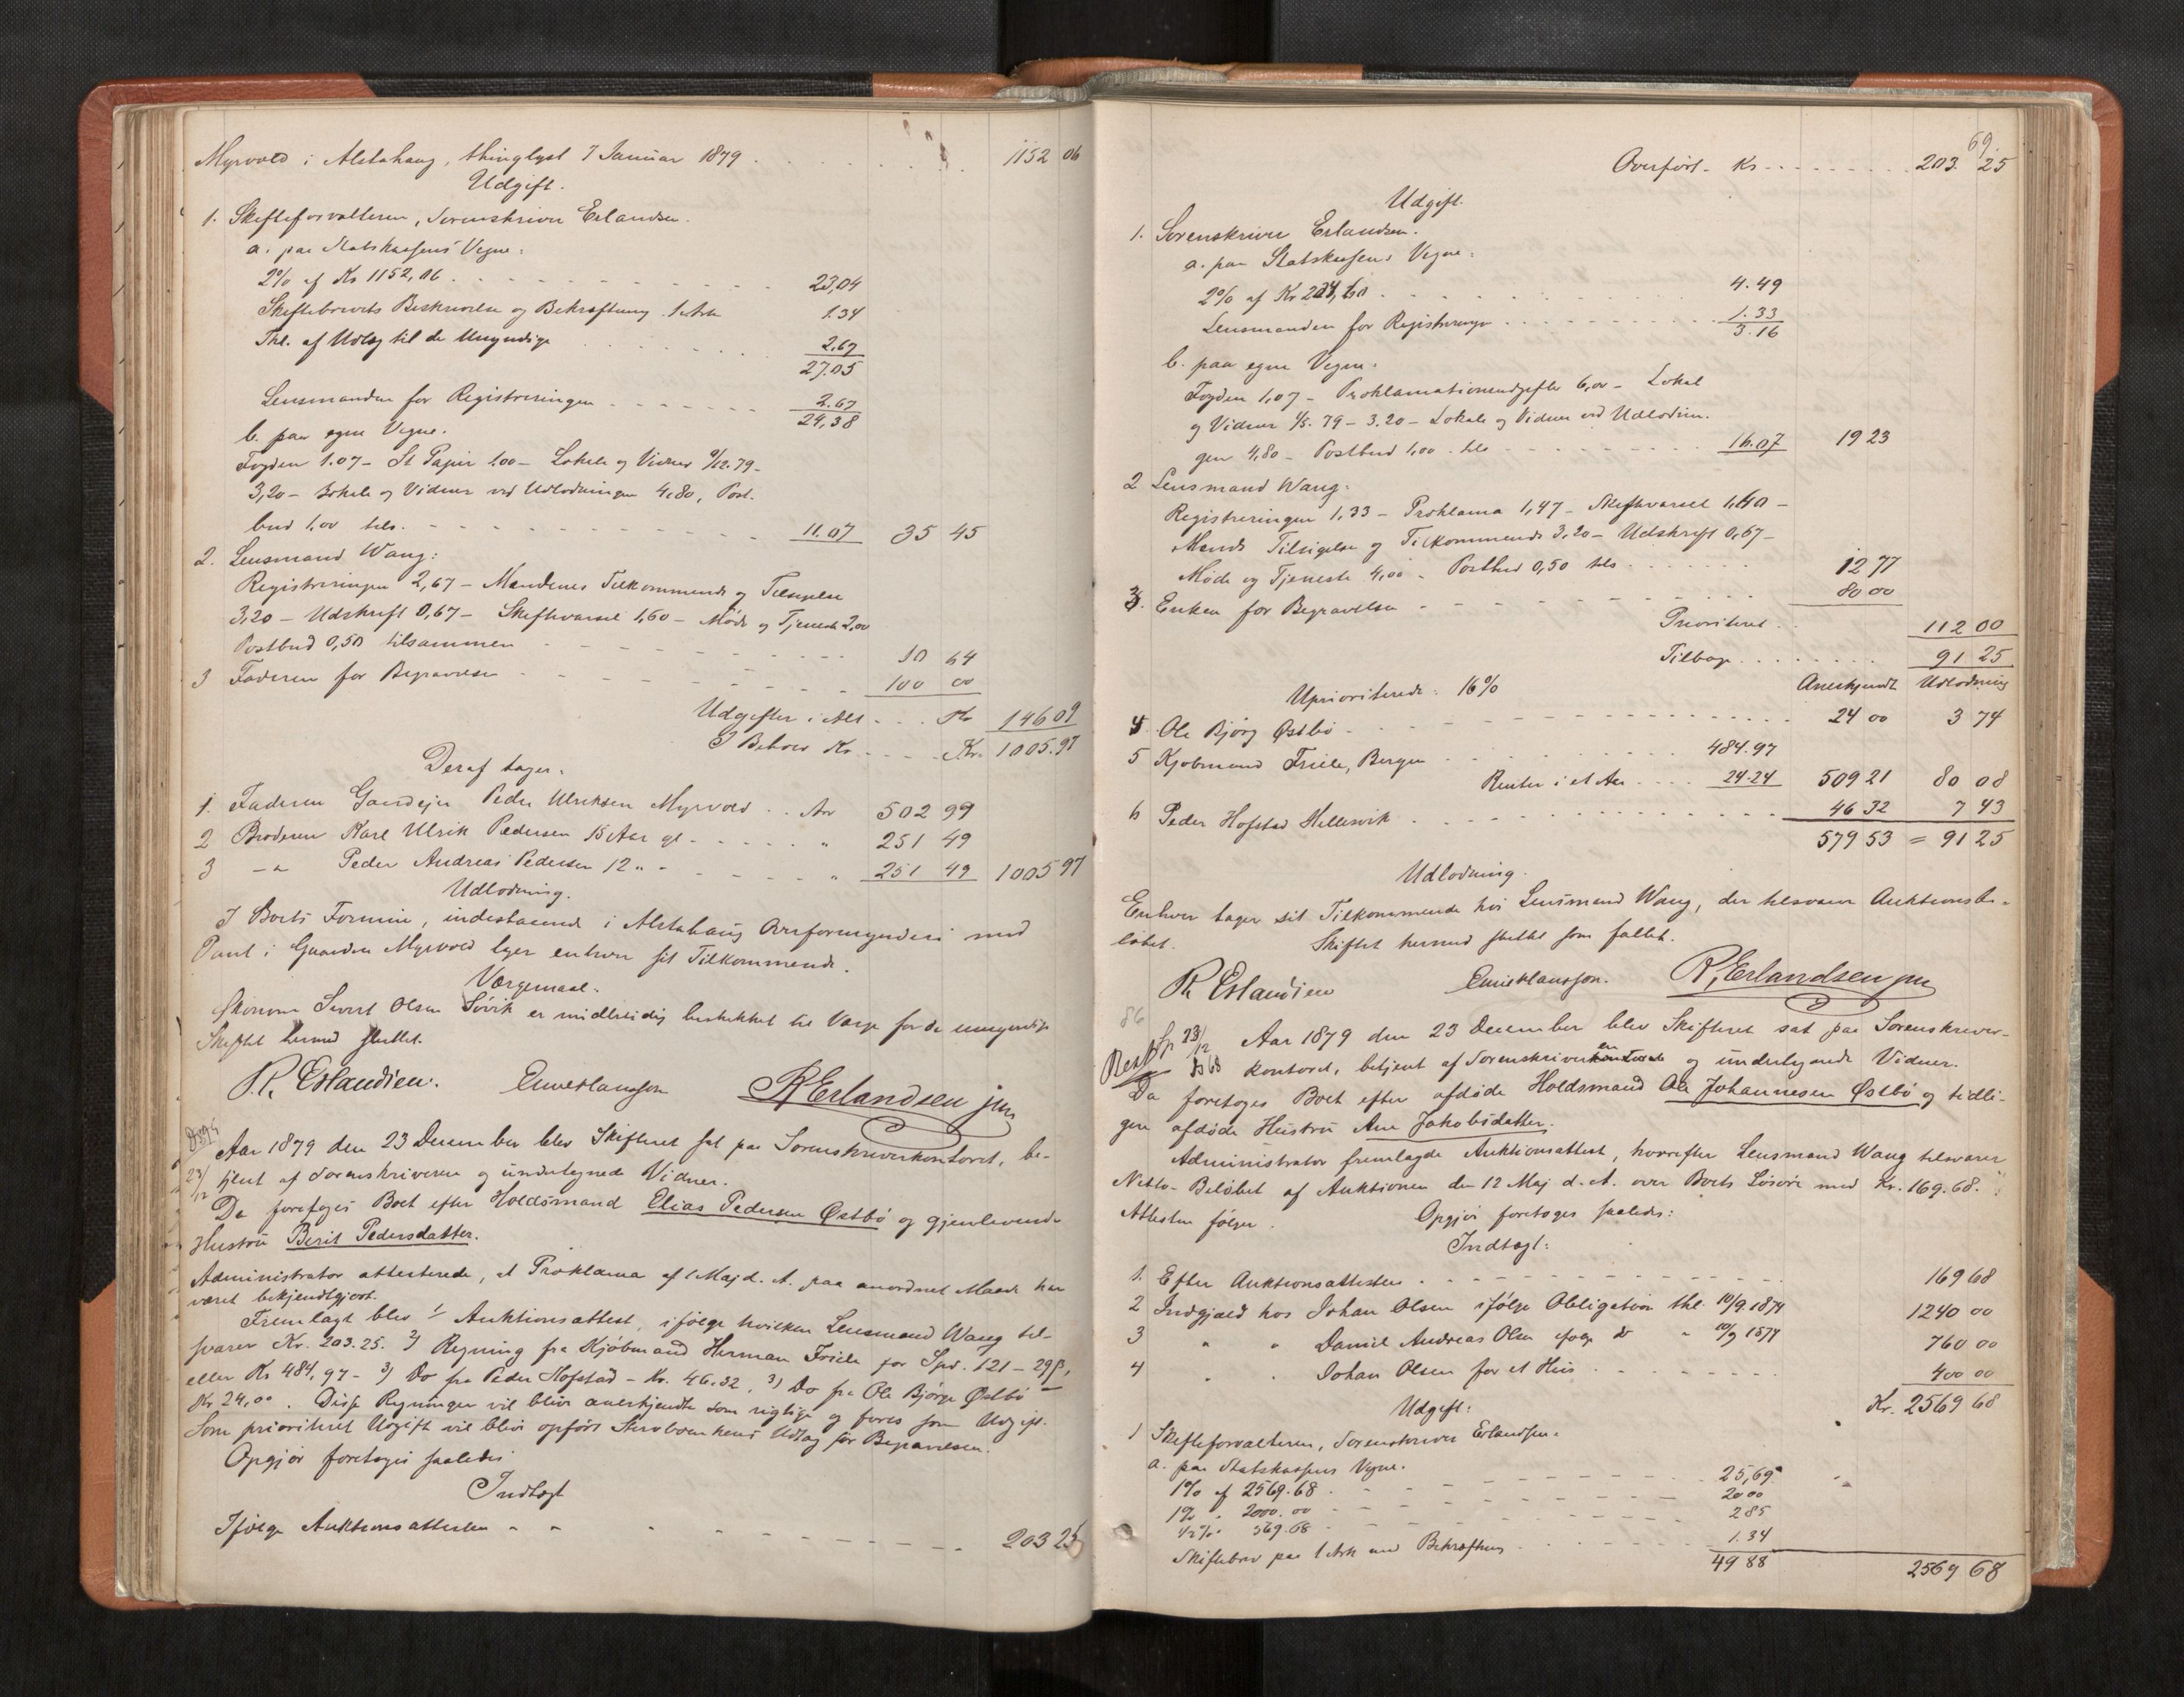 Myrvold i Alstahaug, thinglyst 7 Januar 1879 . . . . . . 1152 06
Udgift.
1. Skifteforvalteren, Sorenskriver Erlandsen.
a. paa Statskassens Vegne:
2% af Kr 1152,06 . . . 23,04
Skiftebrevets Beskrivelse og Bekræftning 1 Ark 1.34
Thl. af Udlæg til de Umyndige . . . 2,67
27.05
Lensmanden for Registreringen . . . 2.67
24,38
b. paa egne Vegne.
Fogden 1.07 - St Papir 1.00 - Lokale og Vidner 9/12.79 -
3,20 - Lokale og Vidner ved Udlodningen 4.80, Post-
bud 1,00 tils. . . . 11.07 35 45
2. Lensmand Wang:
Registreringen 2,67 - Mændenes Tilkommende og Tilsigelse
3,20 - Udskrift 0,67 - Skiftevarsel 1,60 - Møde og Tjeneste 2,00
Postbud 0,50 tilsammen . . . 10 64
3 Faderen for Begravelsen . . . 100 00
Udgifter i Alt . . . Kr 146 09
I Behold Kr . . . Kr. 1005.97
Deraf tager:
1. Faderen Gaardejer Peder Ulriksen Myrvold . . Arv 502 99
2 Broderen Karl Ulrik Pedersen 15 Aar gl . . . " 251 49
3 - " Peder Andreas Pedersen 12 " - . . . " 251 49 1005 97
Udlodning.
I Boets Formue, indestaaende i Alstahaug Overformynderi med
Pant i Gaarden Myrvold tager enhver sit Tilkommende.
Værgemaal.
Sivert Olsen Søvik er midlertidig beskikket til Værge for de umyndige
Skiftet hermed sluttet.
R. Erlandsen. R Erlandsen jun
Aar 1879 den 23 December blev Skifteret sat paa Sorenskriverkontoret, be-
23/12 tjent af Sorenskriveren og undertegnede Vidner.
Da foretoges Boet efter Holdsmand Elias Pedersen Østbö og gjenlevende
Hustru Berit Pedersdatter.
Administrator attesterede, at Proklama af 1 Maj d. A. paa anordnet Maade har
været bekjendtgjort.
Fremlagt blev 1) Auktionsattest, ifølge hvilken Lensmand Wang til-
svarer Kr. 203.25. 2) Regning fra Kjøbmand Herman Friele for Spd. 121 - 29 β,
eller Kr 484,97 - 3) Do fra Peder Hofstad - Kr. 46.32, 3) Do fra Ole Bjørge Østbö
Kr 24,00. Disse Regninger vil blive anerkjendte som rigtige og føres som Udgift.
Som prioriteret Udgift vil blive opført Stervboenkens Udlæg for Begravelsen.
Opgjør foretoges saaledes
Indtægt
Ifølge Auktionsattesten - - - - 203 25
69.
Overført - Kr . . . . . . 203. 25
Udgift.
1. Sorenskriver Erlandsen.
a. paa Statskassens Vegne:
2% af Kr 224,60 . . . 4.49
Lensmanden for Registrering . . . 1.33
3.16
b. paa egne Vegne:
Fogden 1,07 - Proklamationsudgifter 6,00 - Lokal
og Vidner 1/5. 79 - 3.20 - Lokale og Vidner ved Udlodnin-
gen 4,80 - Postbud 1,00 tils . . . 16.07 19 23
2 Lensmand Wang:
Registreringen 1,33 - Proklama 1,47 - Skiftevarsel 1,60 -
Mænds Tilsigelse og Tilkommende 3,20 - Udskrift 0,67 -
Møde og Tjeneste 4,00 - Postbud 0,50 tils . . . 12 77
3. Enken for Begravelsen . . . 80 00
Prioriteret . . 112 00
Tilbage . . . 91 25
Uprioriterede: 16% Anerkjendt Udlodning
4 Ole Bjørg Østbö . . . 24 00 3 74
5 Kjøbmand Friele, Bergen . . . 484.97
Renter i et Aar . . . 24.24 509 21 80 08
6 Peder Hofstad Hellesvik . . . 46 32 7 43
579 53 = 91 25
Udlodning.
Enhver tager sit Tilkommende hos Lensmand Wang, der tilsvarer Auktionsbe-
løbet. Skiftet hermed sluttet som fallit.
R Erlandsen R. Erlandsen jun
86
Aar 1879 den 23 December blev Skifteret sat paa Sorenskriver-
kontoret, betjent af Sorenskriveren og undertegnede Vidner.
Da foretoges Boet efter afdøde Holdsmand Ole Johannesen Østbö og tidli-
gere afdøde Hustru Ane Jakobsdatter.
Administrator fremlagde Auktionsattest, hvorefter Lensmand Wang tilsvarer
Netto-Beløbet af Auktionen den 12 Maj d. A. over Boets Løsøre med Kr. 169.68.
Attesten følger. Opgjør foretoges saaledes:
Indtægt:
1. Efter Auktionsattesten . . . 169 68
2 Indgjæld hos Johan Olsen ifølge Obligation thl. 10/9.1874 1240 00
3 " " Daniel Andreas Olsen ifølge do " 10/9 1874 760 00
4 " " Johan Olsen for et Hus . . . 400 00
Kr. 2569 68
Udgift:
1 Skifteforvalteren, Sorenskriver Erlandsen.
a. paa Statskassens Vegne.
1% af 2569.68 . . . 25,69
1% " 2000.00 . . . 20 00
1/2% " 569.68 . . . 2 85
Skiftebrev paa 1 Ark med Bekræftning . . . 1.34
49 88 2569 68